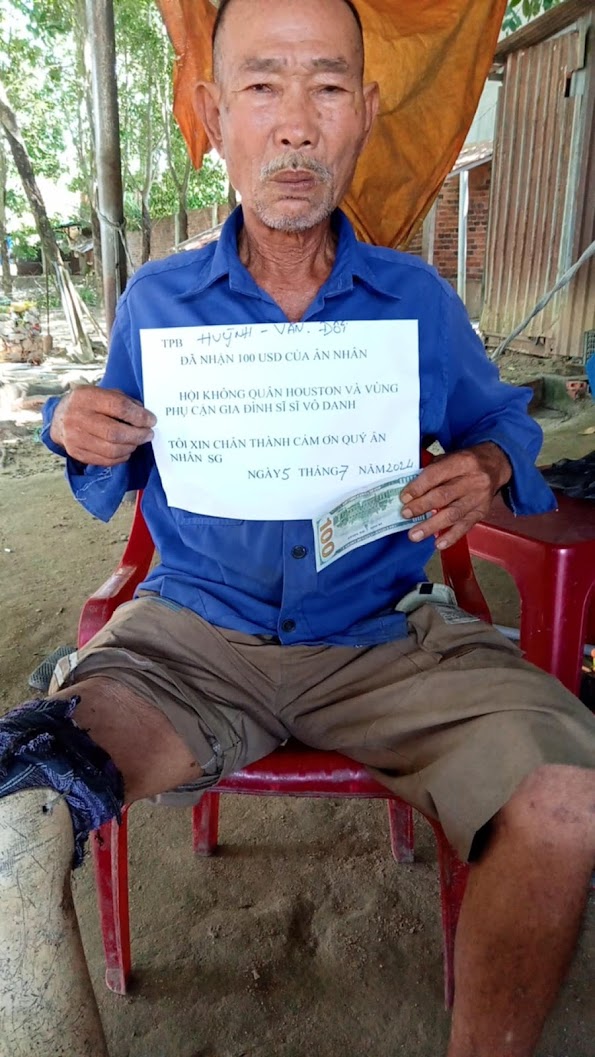 TPB HUỲNH - VĂN. ĐỢI
ĐÃ NHẬN 100 USD CỦA ÂN NHÂN
HỘI KHÔNG QUÂN HOUSTON VÀ VÙNG
PHỤ CẬN GIA ĐÌNH SĨ SĨ VÔ DANH
TÔI XIN CHÂN THÀNH CẢM ƠN QUÝ ÂN
NHÂN SG
NGÀY 5 THÁNG 7 NĂM 2024
100